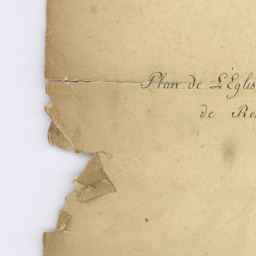 Plan de L'Eglis
de Re